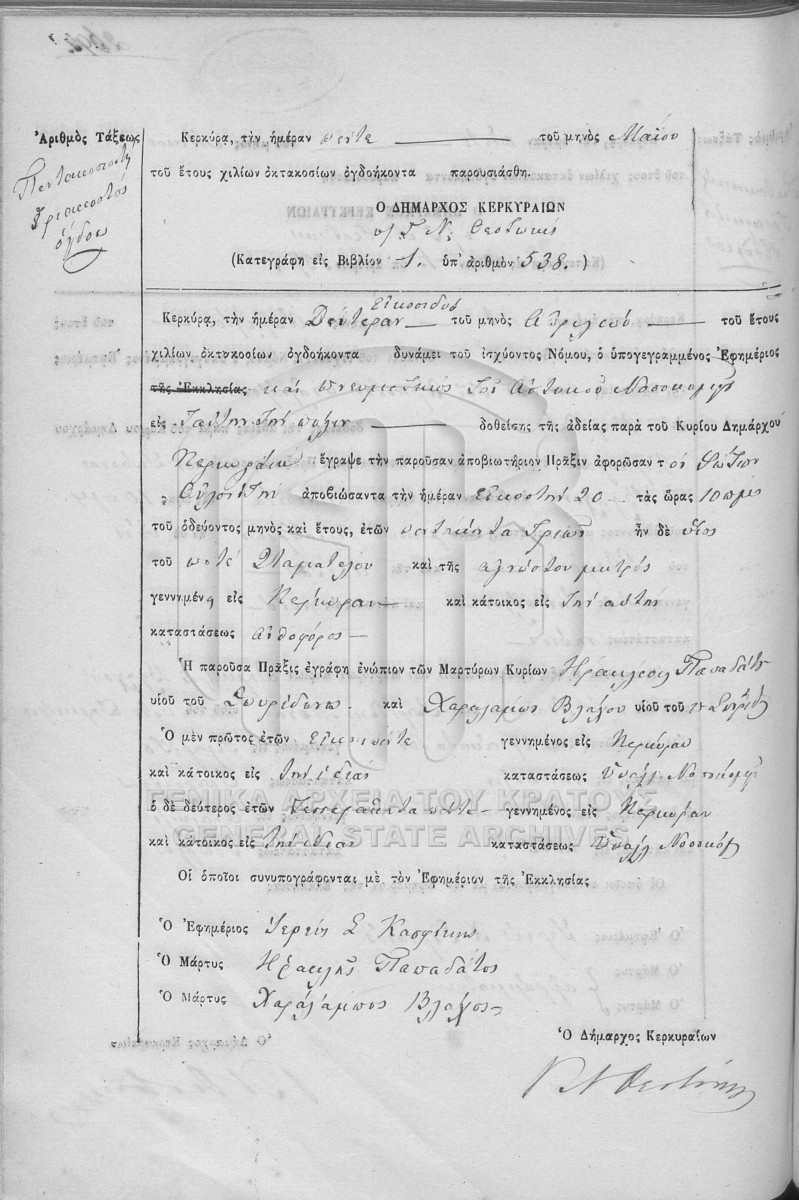 Ἀριθμὸς Τάξεως
Πεντακοσιοστὸς
Τριακοστὸς
ὄγδοος
Κερκύρᾳ, τὴν ἡμέραν πέντε τοῦ μηνὸς Μαΐου
τοῦ ἔτους χιλίων ὀκτακοσίων ὀγδοήκοντα παρουσιάσθη.
Ὁ ΔΗΜΑΡΧΟΣ ΚΕΡΚΥΡΑΙΩΝ
Ν. Θεοτόκης
(Κατεγράφη εἰς Βιβλίον 1. ὑπ' ἀριθμὸν 538.)
Κερκύρᾳ, τὴν ἡμέραν Δευτέραν εἰκοσιδύο τοῦ μηνὸς Ἀπριλίου τοῦ ἔτους
χιλίων ὀκτακοσίων ὀγδοήκοντα δυνάμει τοῦ ἰσχύοντος Νόμου, ὁ ὑπογεγραμμένος Ἐφημέριος
τῆς Ἐκκλησίας καὶ πνευματικὸς τοῦ Ἀστικοῦ Νοσοκομείου
εἰς ταύτην τὴν πόλιν δοθείσης τῆς ἀδείας παρὰ τοῦ Κυρίου Δημάρχου
Κερκυραίων ἔγραψε τὴν παροῦσαν ἀποβιωτήριον Πρᾶξιν ἀφορῶσαν τὸν Φώτιον
ἀποβιώσαντα τὴν ἡμέραν εἰκοστὴν 20 τὰς ὥρας 10 πμς
τοῦ ὁδεύοντος μηνὸς καὶ ἔτους, ἐτῶν πεντήκοντα τριῶν ἦν δὲ υἱὸς
τοῦ ποτὲ Σταματέλου καὶ τῆς ἀγνώστου μητρὸς
γεννημένος εἰς Κέρκυραν καὶ κάτοικος εἰς τὴν αὐτὴν
καταστάσεως ἀχθοφόρος
Ἡ παροῦσα Πρᾶξις ἐγράφη ἐνώπιον τῶν Μαρτύρων Κυρίων Ἡρακλέους Παπαδάτου
υἱοῦ τοῦ Σπυρίδωνος καὶ Χαραλάμπους Βλάχου υἱοῦ τοῦ π Σπυρίδ
Ὁ μὲν πρῶτος ἐτῶν εἰκοσιπέντε γεννημένος εἰς Κέρκυραν
καὶ κάτοικος εἰς τὴν ἰδίαν καταστάσεως ὑπάλλ. Νοσοκομ
ὁ δὲ δεύτερος ἐτῶν τεσσεράκοντα πέντε γεννημένος εἰς Κέρκυραν
καὶ κάτοικος εἰς τὴν ἰδίαν καταστάσεως ὑπάλλ Νοσοκομ
ΓΕΝΙΚΑ ΑΡΧΕΙΑ ΤΟΥ ΚΡΑΤΟΥΣ
GENERAL STATE ARCHIVES
Οἱ ὁποῖοι συνυπογράφονται μὲ τὸν Ἐφημέριον τῆς Ἐκκλησίας
Ὁ Ἐφημέριος Ἱερεὺς Σ
Ὁ Μάρτυς Ἡρακλῆς Παπαδάτος
Ὁ Μάρτυς Χαράλαμπος Βλάχος
Ὁ Δήμαρχος Κερκυραίων
Ν Θεοτόκης